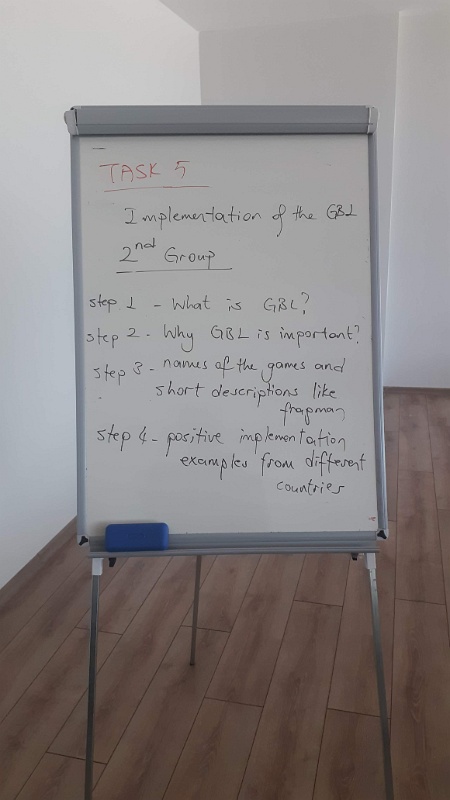 TASK 5
Implementation of the GBL
2nd Group
step 1 - What is GBL?
step 2 - Why GBL is important?
step 3 - names of the games and
short descriptions like
frapman
step 4 - positive implementation
examples from different
countries